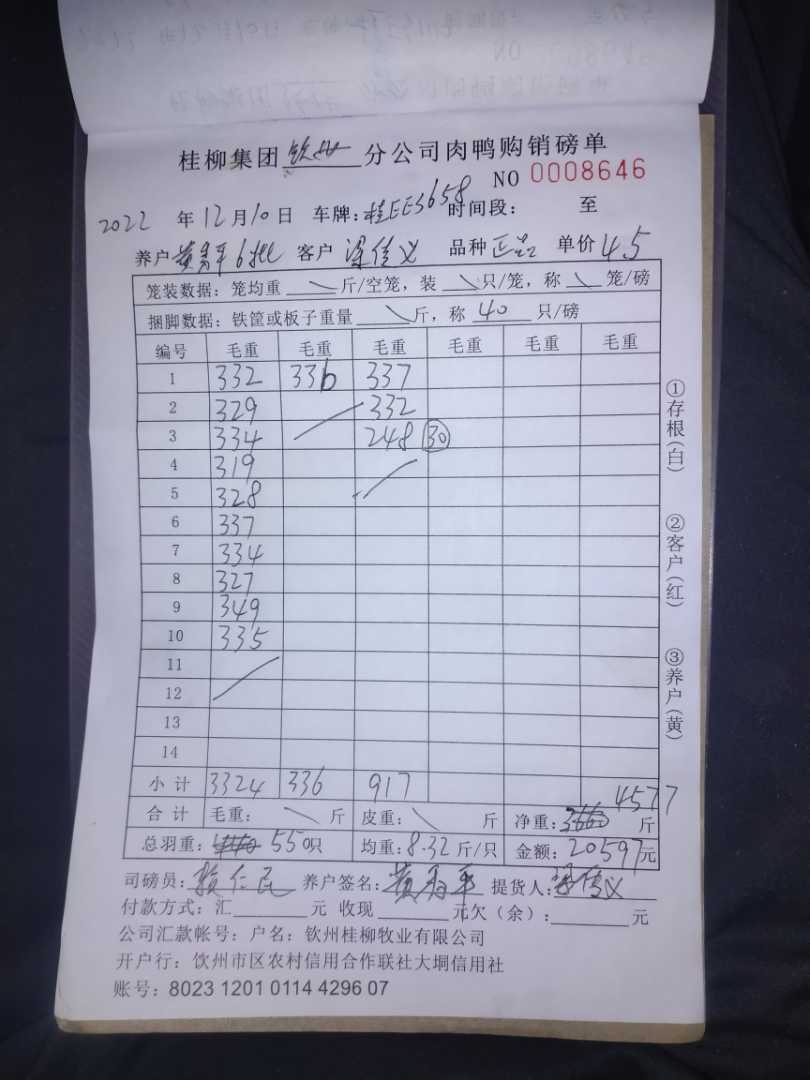 桂柳集团 钦州 分公司肉鸭购销磅单
NO 0008646
2022 年 12 月 10 日 车牌：桂EES658 时间段： 至
养户 黄秀平6批 客户 梁传义 品种 正品 单价 4.5
笼装数据：笼均重 斤/空笼，装 只/笼，称 笼/磅
捆脚数据：铁筐或板子重量 斤，称 40 只/磅
编号 毛重 毛重 毛重 毛重 毛重 毛重
1 332 336 337
2 329 332
3 334 248 30
4 319
5 328
6 337
7 334
8 327
9 349
10 335
11
12
13
14
小计 3324 336 917
4577
合计 毛重： 斤 皮重： 斤 净重：3660 斤
总羽重：440 550只 均重：8.32 斤/只 金额：20597元
司磅员： 养户签名：黄秀平 提货人：梁传义
付款方式：汇 元 收现 元欠（余）： 元
公司汇款帐号：户名：钦州桂柳牧业有限公司
开户行：钦州市区农村信用合作联社大垌信用社
账号：8023 1201 0114 4296 07
①存根（白） ②客户（红） ③养户（黄）